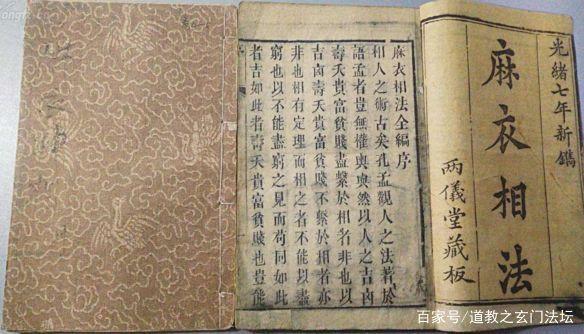 光緒七年新鐫
麻衣相法
两儀堂藏板
麻衣相法全編序
相人之術古矣孔孟觀人之法著於
語孟者豈無權然以人之吉凶
壽夭貴富貧賤盡繫於相名非也以
吉凶壽夭貴富貧賤不繫於相者亦
非也相有定理而相之者不能以盡
窮也以不能盡窮之見而苟同如此
者吉如此者壽夭貴富貧賤也豈能
百家号/道教之玄门法坛